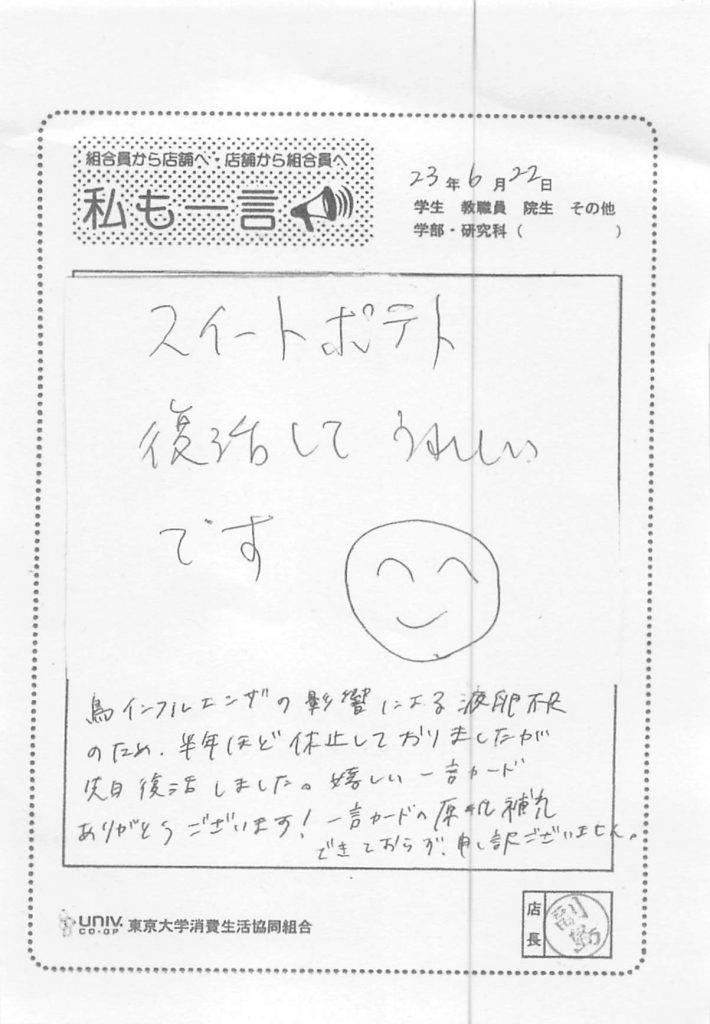 組合員から店舗へ・店舗から組合員へ
私も一言
23年6月22日
学生 教職員 院生 その他
学部・研究科( )
スイートポテト
復活して うれしい
です
鳥インフルエンザの影響による液卵不足
のため、半年ほど休止しておりましたが
先日復活しました。嬉しい一言カード
ありがとうございます! 一言カードの原紙補充
できておらず、申し訳ございません。
UNIV. CO-OP 東京大学消費生活協同組合
店長